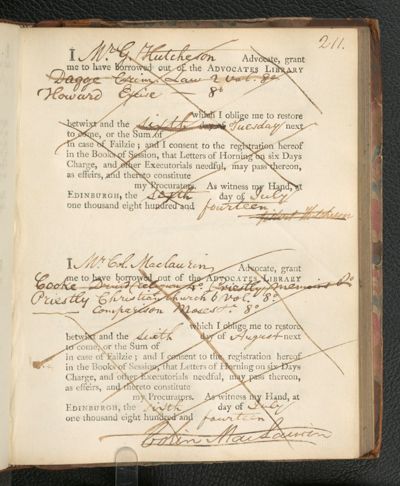 211.
I Mr G. Hutcheson Advocate, grant
me to have borrowed out of the ADVOCATES LIBRARY
Dagge Crim. Law 2 vol. 8o
Howard 8o
which I oblige me to restore
betwixt and the sixth Tuesday next
to come, or the Sum of
in case of Failzie; and I consent to the registration hereof
in the Books of Session, that Letters of Horning on six Days
Charge, and other Executorials needful, may pass thereon,
as effeirs, and thereto constitute
my Procurators. As witness my Hand, at
EDINBURGH, the Sixth day of July
one thousand eight hundred and fourteen
Gilbert Hutcheson
I Mr C. Maclaurin Advocate, grant
me to have borrowed out of the ADVOCATES LIBRARY
Cooke 4o Priestly memoirs 8o
Priestly Christian Church 6 vol. 8o
Comparison Moses 8o
which I oblige me to restore
betwixt and the sixth day of August next
to come, or the Sum of
in case of Failzie; and I consent to the registration hereof
in the Books of Session, that Letters of Horning on six Days
Charge, and other Executorials needful, may pass thereon,
as effeirs, and thereto constitute
my Procurators. As witness my Hand, at
EDINBURGH, the sixth day of July
one thousand eight hundred and fourteen
Colin MacLaurin